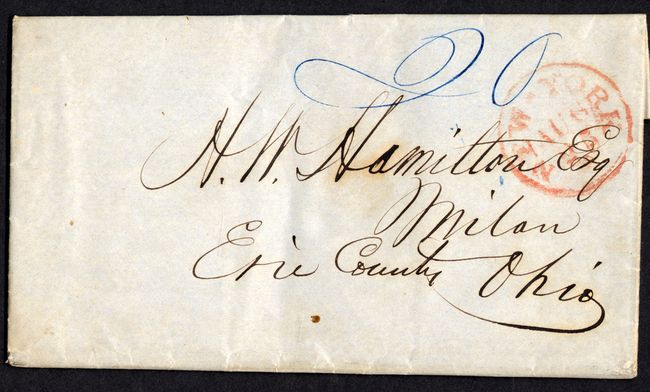 20
NEW-YORK
AUG
H. W. Hamilton Esq
Milan
Erie County Ohio